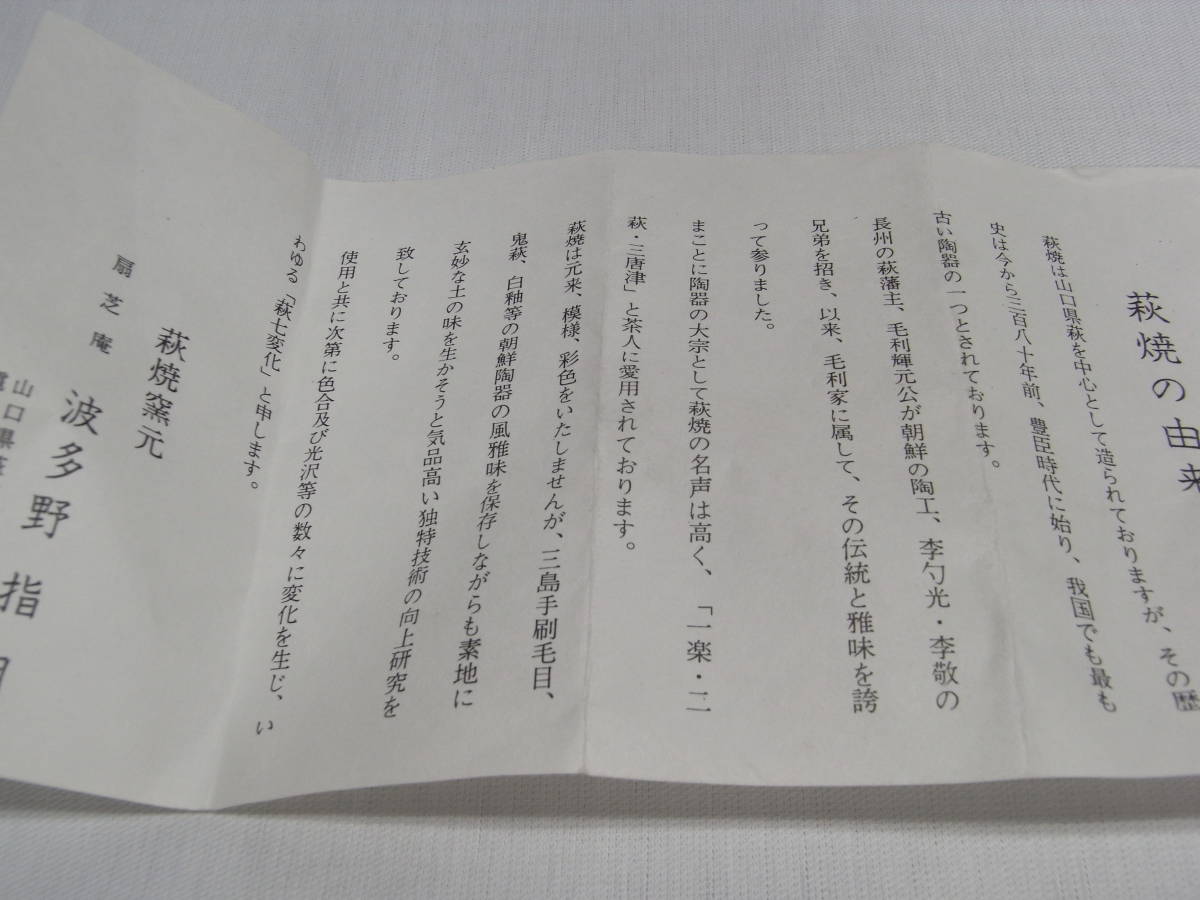 萩焼の由来
萩焼は山口県萩を中心として造られておりますが、その歴
史は今から三百八十年前、豊臣時代に始り、我国でも最も
古い陶器の一つとされております。
長州の萩藩主、毛利輝元公が朝鮮の陶工、李勺光・李敬の
兄弟を招き、以来、毛利家に属して、その伝統と雅味を誇
って参りました。
まことに陶器の大宗として萩焼の名声は高く、「一楽・二
萩・三唐津」と茶人に愛用されております。
萩焼は元来、模様、彩色をいたしませんが、三島手刷毛目、
鬼萩、白釉等の朝鮮陶器の風雅味を保存しながらも素地に
玄妙な土の味を生かそうと気品高い独特技術の向上研究を
致しております。
使用と共に次第に色合及び光沢等の数々に変化を生じ、い
わゆる「萩七変化」と申します。
萩焼窯元
扇芝庵 波多野指月
山口県